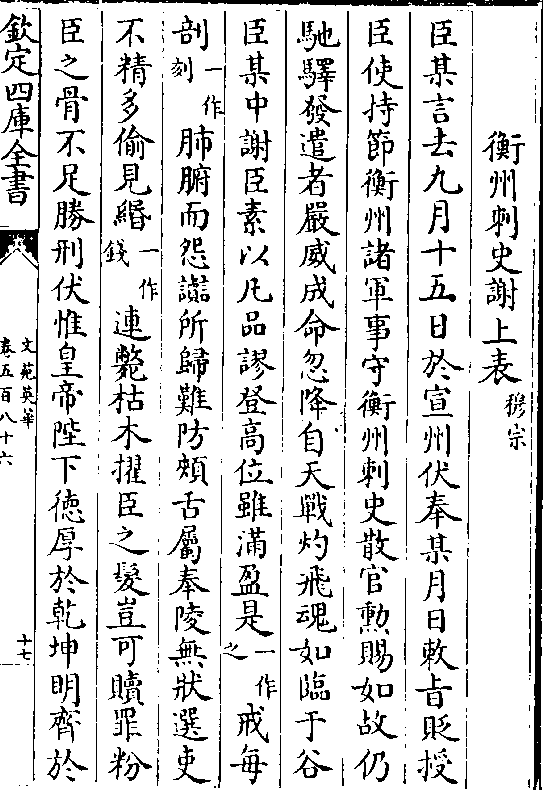 衡州刺史謝上表穆宗
臣某言去九月十五日於宣州伏奉某月日敕旨貶授
臣使持節衡州諸軍事守衡州刺史散官勲賜如故仍
馳驛發遣者嚴威成命忽降自天戰灼飛魂如臨于谷
臣某中謝臣素以凡品謬登高位雖滿盈是一作之戒每
剖一作刻肺腑而怨讟所歸難防頰舌屬奉陵無狀選吏
不精多偷見緡一作錢連斃枯木擢臣之髮豈可贖罪粉
臣之骨不足勝刑伏惟皇帝陛下徳厚於乾坤明齊於
欽定四庫全書
文苑英華
卷五百八十六
十七